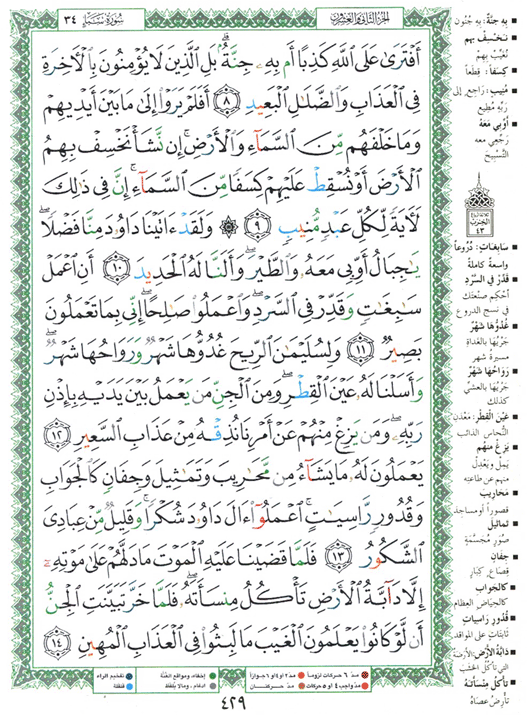 الجزء الثاني والعشرون
سورة سبإ ٣٤
أَفْتَرَىٰ عَلَى ٱللَّهِ كَذِبًا أَم بِهِۦ جِنَّةٌۢ ۗ بَلِ ٱلَّذِينَ لَا يُؤْمِنُونَ بِٱلْـَٔاخِرَةِ
فِى ٱلْعَذَابِ وَٱلضَّلَـٰلِ ٱلْبَعِيدِ ٨ أَفَلَمْ يَرَوْا۟ إِلَىٰ مَا بَيْنَ أَيْدِيهِمْ
وَمَا خَلْفَهُم مِّنَ ٱلسَّمَآءِ وَٱلْأَرْضِ ۚ إِن نَّشَأْ نَخْسِفْ بِهِمُ
ٱلْأَرْضَ أَوْ نُسْقِطْ عَلَيْهِمْ كِسَفًا مِّنَ ٱلسَّمَآءِ ۚ إِنَّ فِى ذَٰلِكَ
لَـَٔايَةً لِّكُلِّ عَبْدٍ مُّنِيبٍ ٩ ۞ وَلَقَدْ ءَاتَيْنَا دَاوُۥدَ مِنَّا فَضْلًا ۖ
يَـٰجِبَالُ أَوِّبِى مَعَهُۥ وَٱلطَّيْرَ ۖ وَأَلَنَّا لَهُ ٱلْحَدِيدَ ١٠ أَنِ ٱعْمَلْ
سَـٰبِغَـٰتٍ وَقَدِّرْ فِى ٱلسَّرْدِ ۖ وَٱعْمَلُوا۟ صَـٰلِحًا ۖ إِنِّى بِمَا تَعْمَلُونَ
بَصِيرٌ ١١ وَلِسُلَيْمَـٰنَ ٱلرِّيحَ غُدُوُّهَا شَهْرٌ وَرَوَاحُهَا شَهْرٌ ۖ
وَأَسَلْنَا لَهُۥ عَيْنَ ٱلْقِطْرِ ۖ وَمِنَ ٱلْجِنِّ مَن يَعْمَلُ بَيْنَ يَدَيْهِ بِإِذْنِ
رَبِّهِۦ ۖ وَمَن يَزِغْ مِنْهُمْ عَنْ أَمْرِنَا نُذِقْهُ مِنْ عَذَابِ ٱلسَّعِيرِ ١٢
يَعْمَلُونَ لَهُۥ مَا يَشَآءُ مِن مَّحَـٰرِيبَ وَتَمَـٰثِيلَ وَجِفَانٍ كَٱلْجَوَابِ
وَقُدُورٍ رَّاسِيَـٰتٍ ۚ ٱعْمَلُوٓا۟ ءَالَ دَاوُۥدَ شُكْرًا ۚ وَقَلِيلٌ مِّنْ عِبَادِىَ
ٱلشَّكُورُ ١٣ فَلَمَّا قَضَيْنَا عَلَيْهِ ٱلْمَوْتَ مَا دَلَّهُمْ عَلَىٰ مَوْتِهِۦٓ
إِلَّا دَآبَّةُ ٱلْأَرْضِ تَأْكُلُ مِنسَأَتَهُۥ ۖ فَلَمَّا خَرَّ تَبَيَّنَتِ ٱلْجِنُّ
أَن لَّوْ كَانُوا۟ يَعْلَمُونَ ٱلْغَيْبَ مَا لَبِثُوا۟ فِى ٱلْعَذَابِ ٱلْمُهِينِ ١٤
به جنّة: به جنون
نخسف بهم
نُغيّب بهم
كسفاً: قطعاً
منيب: راجع إلى
ربّه مطيع
أوّبي معه
رجّعي معه
التسبيح
الحزب
٤٣
سابغات: دروعاً
واسعة كاملة
قدّر في السّرد
أحكم صنعتك
في نسج الدروع
غدوّها شهر
جريها بالغداة
مسيرة شهر
رواحها شهر
جريها بالعشيّ
كذلك
عين القطر: معدن
النّحاس الذائب
يزغ منهم
يمل ويعدل
منهم عن طاعته
محاريب
قصوراً أو مساجد
تماثيل
صور مجسّمة
جفان
قصاع كبار
كالجواب
كالحياض العظام
قدور راسيات
ثابتات على المواقد
دابّة الأرض: الأرضة
التي تأكل الخشب
تأكل منسأته
تأرض عصاه
مدّ ٦ حركات لزوماً
مدّ ٢ أو ٤ أو ٦ جوازاً
مدّ واجب ٤ أو ٥ حركات
مدّ حركتان
إخفاء، ومواقع الغنّة
إدغام، وما لا يُلفظ
تفخيم الراء
قلقلة
٤٢٩